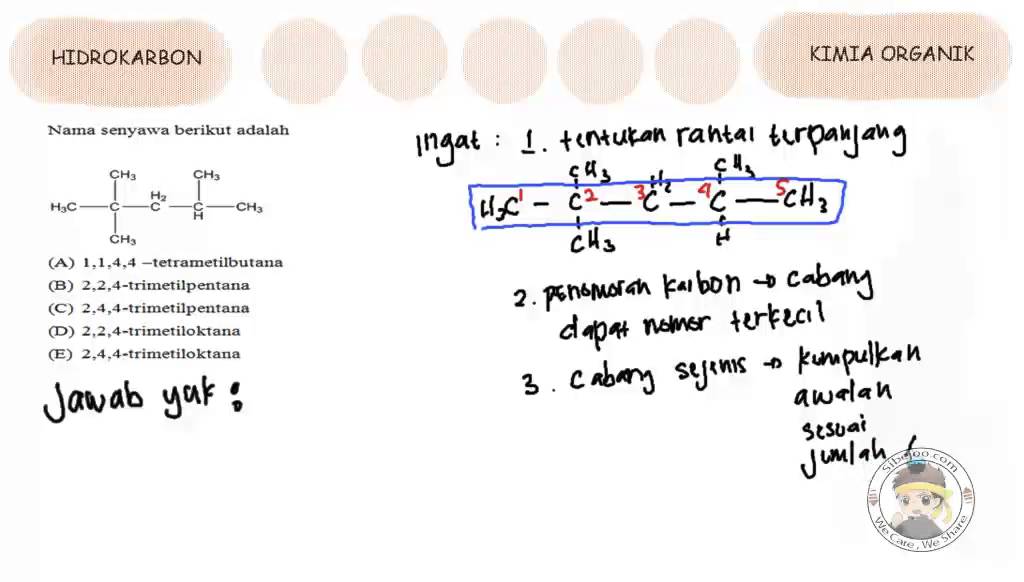 HIDROKARBON
KIMIA ORGANIK
Nama senyawa berikut adalah
CH₃ CH₃
H₃C—C—C—C—CH₃
H₂
H
CH₃
(A) 1,1,4,4 –tetrametilbutana
(B) 2,2,4-trimetilpentana
(C) 2,4,4-trimetilpentana
(D) 2,2,4-trimetiloktana
(E) 2,4,4-trimetiloktana
Jawab yuk :
Ingat : 1. tentukan rantai terpanjang
CH₃ H₂ CH₃
H₃C 1 – C 2 – 3 C – 4 C – 5 CH₃
CH₃ H
2. penomoran karbon → cabang
dapat nomor terkecil
3. cabang sejenis → kumpulkan
awalan
sesuai
jumlah (
Sibejoo.com
We Care, We Share